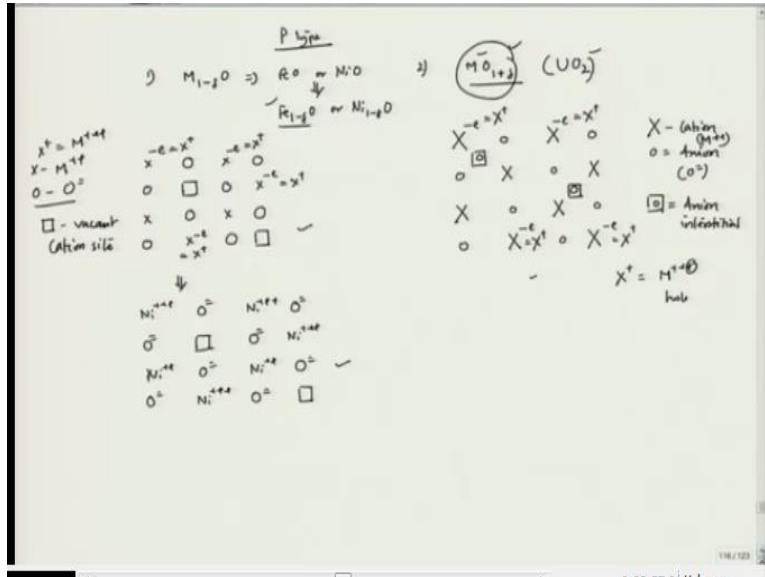 P type
1) M₁₋δO ⇒ FeO or NiO
⇓
Fe₁₋δO or Ni₁₋δO
x⁺ = M⁺⁺⁺
x - M⁺⁺
O - O⁼
□ - vacant
Cation site
x⁻ᵉ=x⁺ O x⁻ᵉ=x⁺ O
O □ O x⁻ᵉ=x⁺
x O x O
O x⁻ᵉ=x⁺ O □
⇓
Ni⁺⁺⁺ O⁼ Ni⁺⁺⁺ O⁼
O⁼ □ O⁼ Ni⁺⁺⁺
Ni⁺⁺ O⁼ Ni⁺⁺ O⁼
O⁼ Ni⁺⁺⁺ O⁼ □
2) MO₁₊δ (UO₂)
X⁻ᵉ=X⁺ o X⁻ᵉ=X⁺ o
o X o X
X o X o
o X⁻ᵉ=X⁺ o X⁻ᵉ=X⁺
X - Cation
(M⁺⁺)
o = Anion
(O⁼)
= Anion
interstitial
X⁺ = M⁺⁺⊕
hole
116 / 123